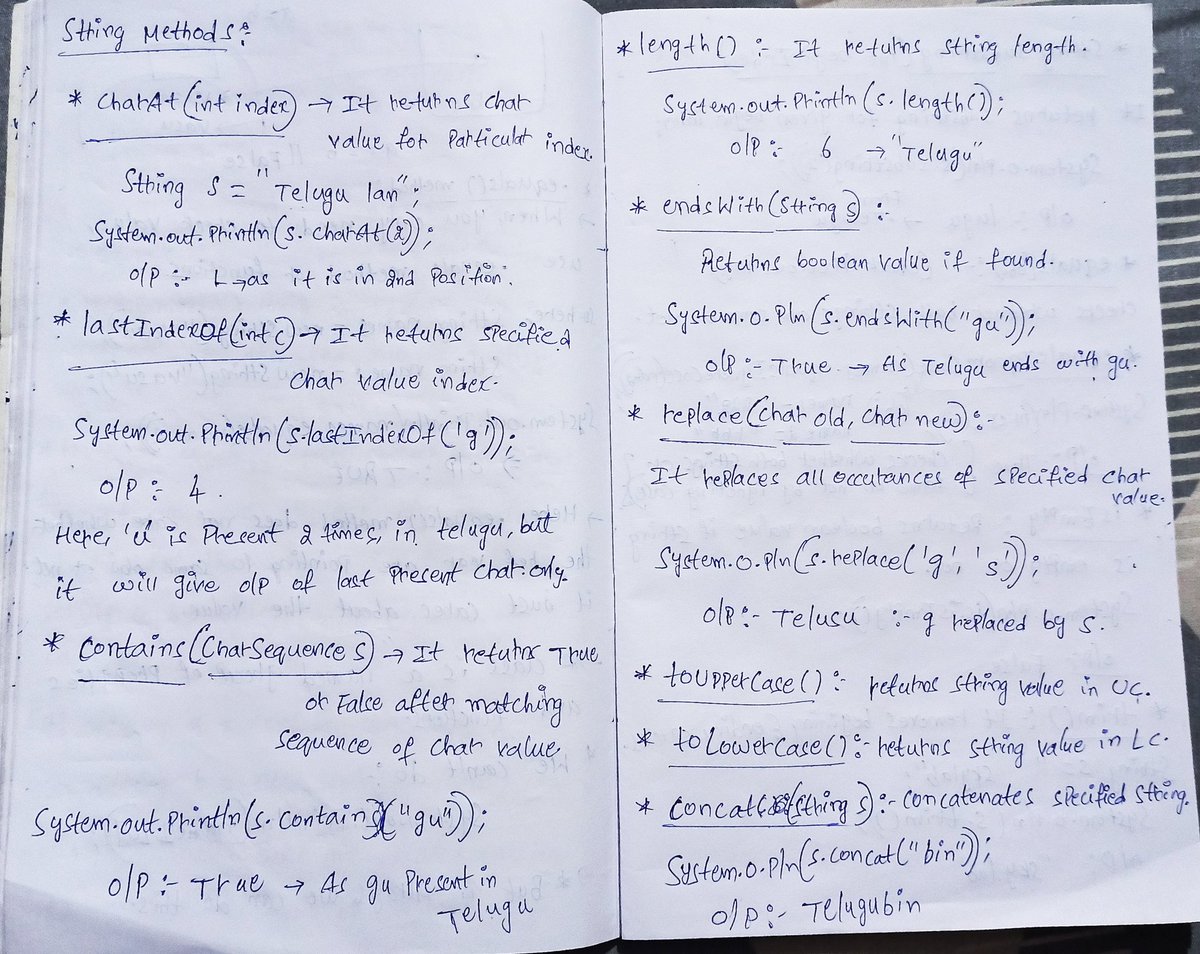 String Methods :-
* charAt(int index) → It returns char
value for Particular index.
String s = "Telugu lan";
System.out.Println(s. charAt(2));
O/P :- L → as it is in 2nd Position.
* lastIndexOf(int c) → It returns specified
char value index.
System.out.Println(s.lastIndexOf('g'));
O/P :- 4.
Here, 'u' is Present 2 times, in telugu, but
it will give o/p of last Present char only.
* Contains(CharSequence s) → It returns True
or False after matching
sequence of char value.
System.out.Println(s. contains("gu"));
O/P :- True → As gu Present in
Telugu
* length() :- It returns string length.
System.out.Println(s. length());
O/P :- 6 → "Telugu"
* endsWith(String s) :-
Returns boolean value if found.
System.o.Pln(s.endsWith("gu"));
O/P :- True. → As Telugu ends with gu.
* replace(Char old, Char new) :-
It replaces all occurances of specified char
value.
System.o.Pln(s.replace('g', 's'));
O/P :- Telusu :- g replaced by s.
* toUpperCase() :- returns string value in UC.
* toLowerCase() :- returns string value in LC.
* Concat(String s) :- Concatenates specified string.
System.o.Pln(s.concat("bin"));
O/P :- Telugubin